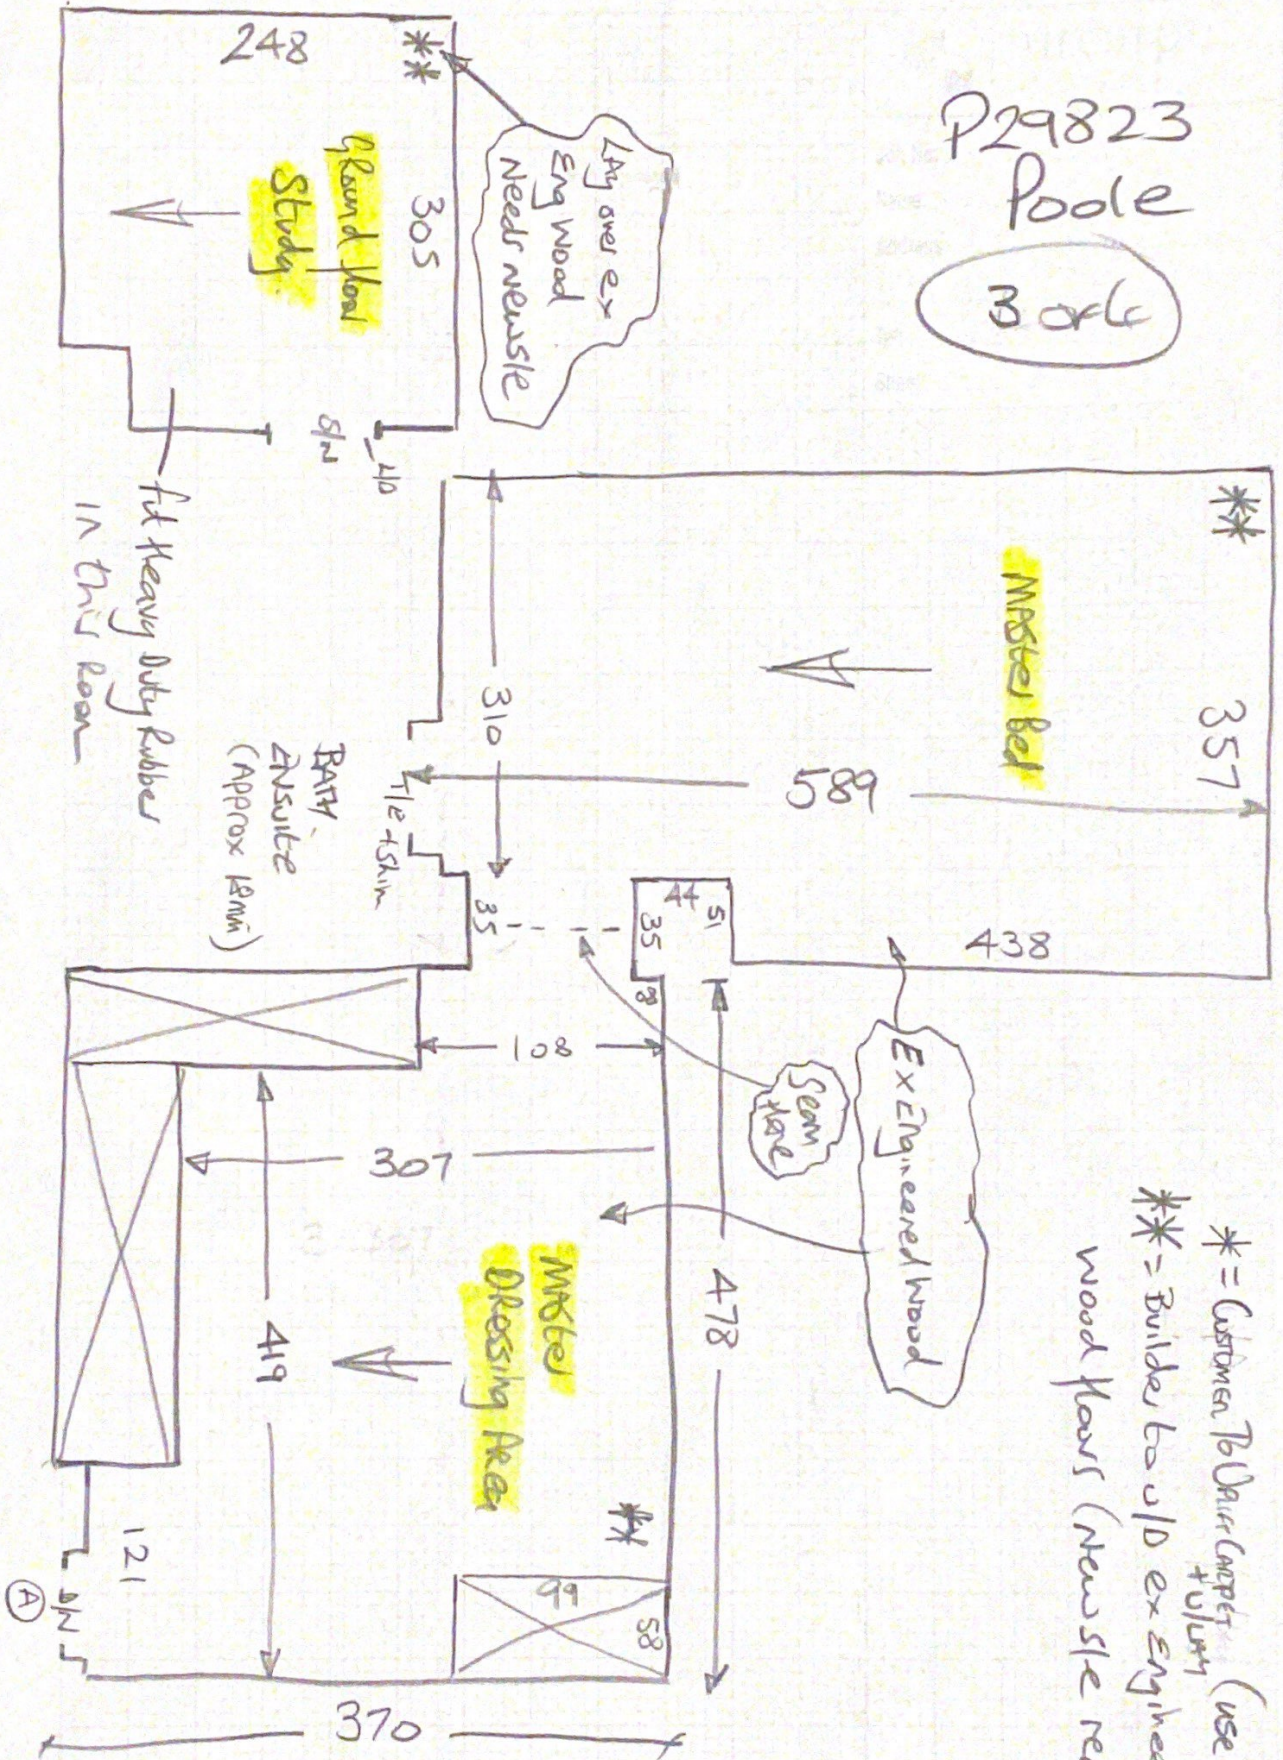 P29823
Poole
3 of 6
248
**
305
Ground floor
Study.
Lay over ex
Eng Wood
Needs new s/e
S/N
fit Heavy Duty Rubber
in this Room
**
357
Master Bed
589
310
438
T/e + Shim
BATH
ENSUITE
(Approx 18mm)
35
44
51
35
8
Seam
Here
Ex Engineered Wood
108
307
478
419
Master
Dressing Area
**
99
58
121
S/N
A
370
* = Customer To Uplift CARPET (use
+ U/LAY
** = Builder to u/D ex Enginee
wood floors (New s/e re